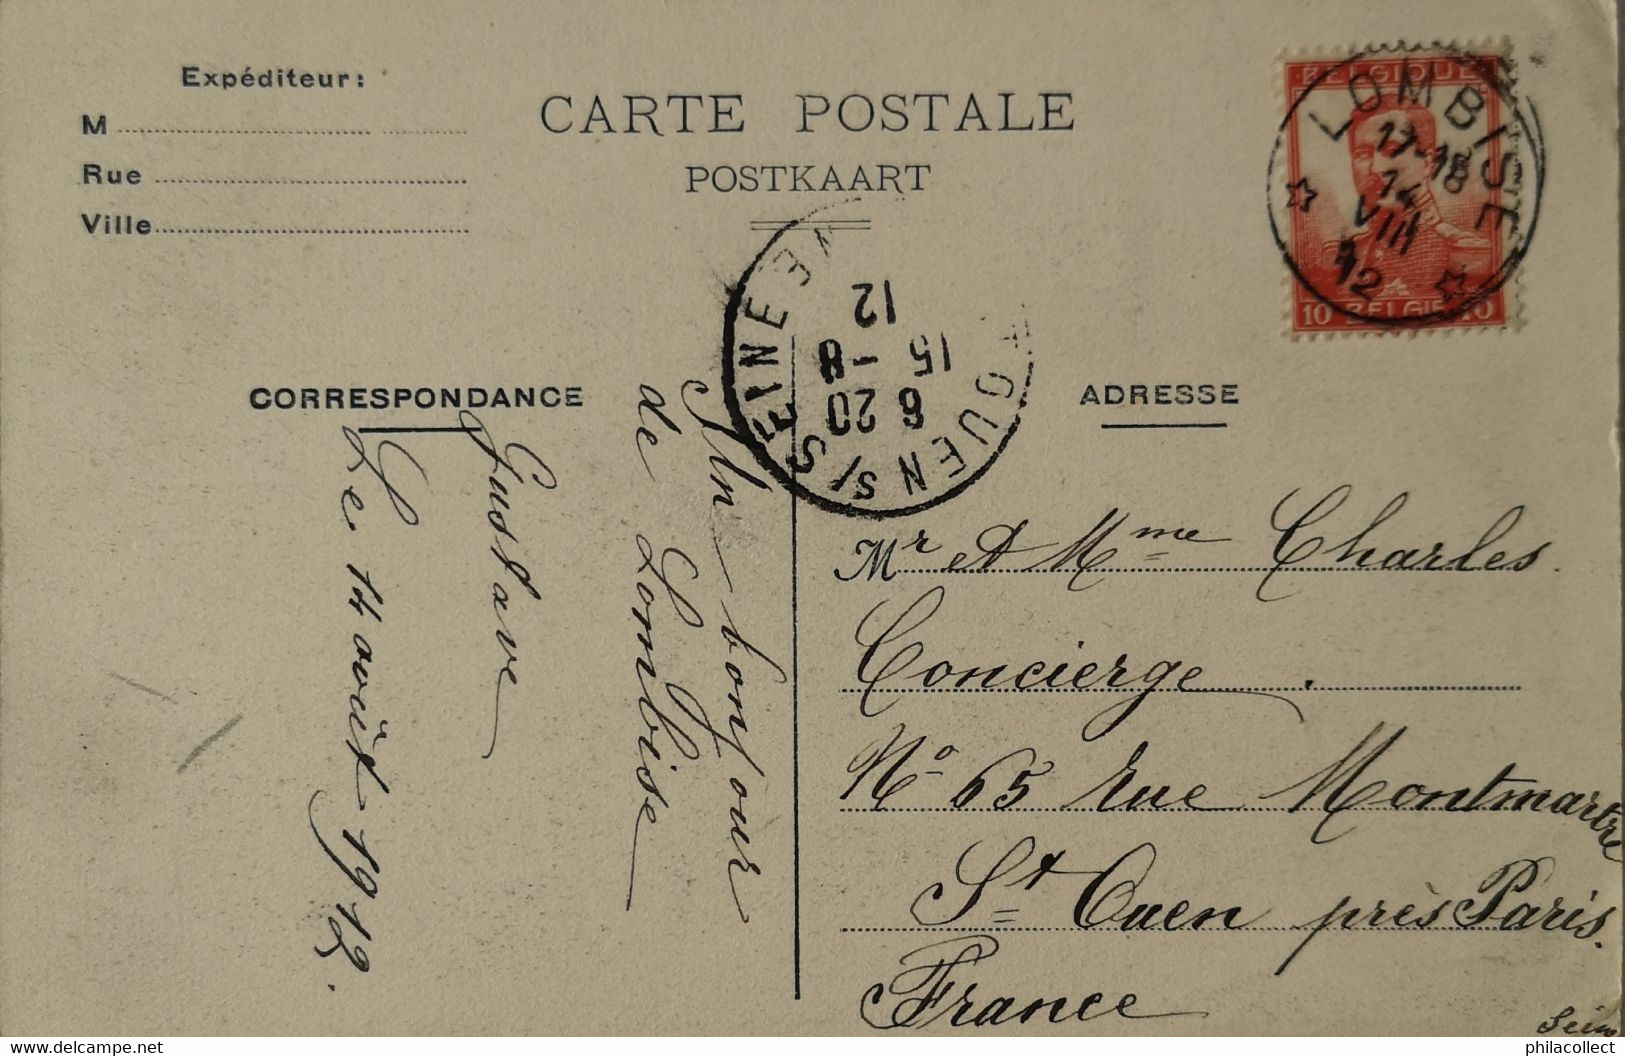 Expéditeur:
M
Rue
Ville
CARTE POSTALE
POSTKAART
BELGIQUE
10 BELGIË 10
LOMBISE
17-18
14
VIII
12
OUEN S/ SEINE
6 20
15 - 8
12
CORRESPONDANCE
ADRESSE
Un bonjour
de Lombise
Gustave
Le 14 août 1912.
Mr et Mme Charles
Concierge.
No 65 rue Montmartre
St Ouen près Paris.
France
Seine
philacollect